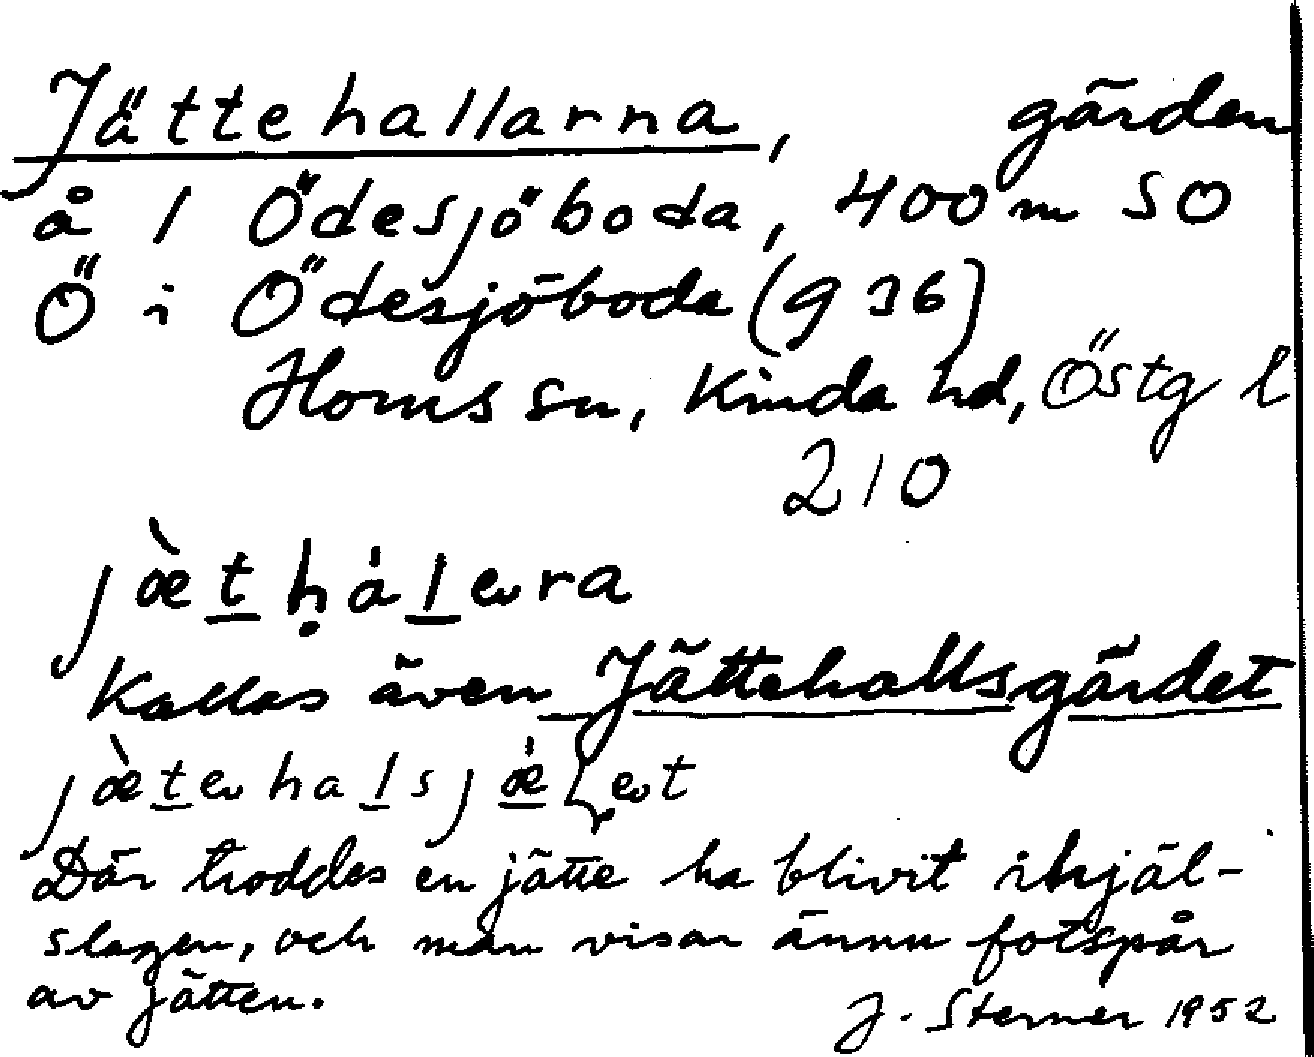 Jättehallarna, gärden
å 1 Ödesjöboda, 400 m SO
Ö i Ödesjöboda (9 36)
Horns sn, Kinda hd, Östg l
210
Kallas även Jättehallsgärdet
Där troddes en jätte ha blivit ihjäl-
slagen, och man visar ännu fotspår
av jätten.
J. Sterner 1952